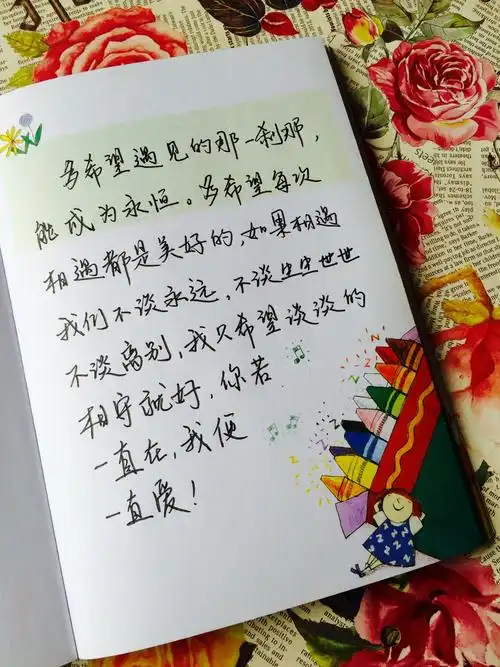 多希望遇见的那一刹那，
能成为永恒。多希望每次
相遇都是美好的，如果相遇
我们不谈永远，不谈生生世世
不谈离别，我只希望谈谈的
相守就好，你若
一直在，我便
一直爱！